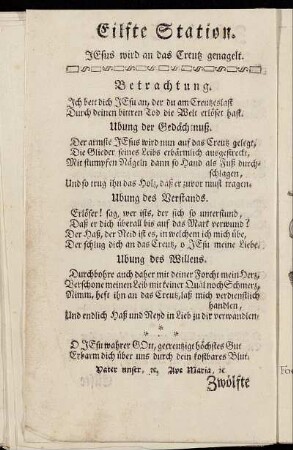 Eilfte Station.
JEsus wird an das Creutz genagelt.
Betrachtung.
Ich bett dich JEsu an, der du am Creutzeslast
Durch deinen bittren Tod die Welt erlöser hast.
Ubung der Gedächtnuß.
Der armste JEsus wird nun auf das Creutz gelegt,
Die Glieder seines Leibs erbärmlich ausgestreckt,
Mit stumpfen Nägeln dann so Hand als Fuß durch-
schlagen,
Und so trug ihn das Holz, daß er zuvor must tragen.
Ubung des Verstands.
Erlöser! sag, wer ists, der sich so unterstund,
Daß er dich überall bis auf das Mark verwund?
Der Haß, der Neid ist es, in welchem ich mich übe,
Der schlug dich an das Creutz, o JEsu meine Liebe.
Ubung des Willens.
Durchbohre auch daher mit deiner Forcht mein Herz,
Verschone meinen Leib mit keiner Qual noch Schmerz,
Nimm, heft ihn an das Creutz, laß mich verdienstlich
handlen,
Und endlich Haß und Neyd in Lieb zu dir verwandlen.
O JEsu wahrer GOtt, gecreutzigt höchstes Gut
Erbarm dich über uns durch dein kostbares Blut.
Vater unser, ꝛc. Ave Maria, ꝛc
Zwölfte